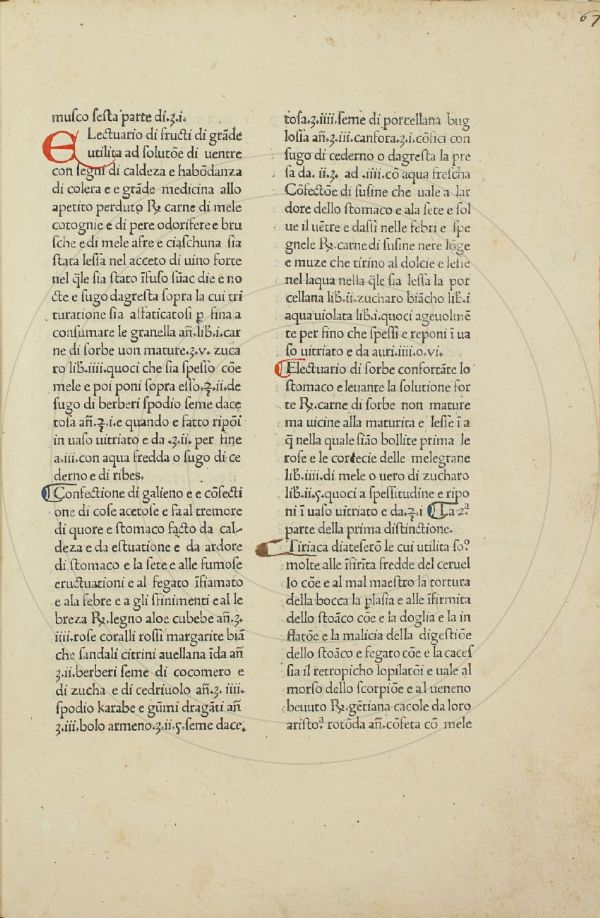 67
musco sesta parte di.ʒ.i.
ELectuario di fructi di grāde
utilita ad solutōe di uentre
con segni di caldeza e habōdanza
di colera e e grāde medicina allo
apetito perduto ꝶ. carne di mele
cotognie e di pere odorifere e bru
sche e di mele afre e ciaschuna sia
stata lessa nel acceto di uino forte
nel q̄le sia stato īfuso sūac die e no
cte e sugo dagresta sopra la cui tri
turatione sia affaticatosi ꝑ fina a
consumare le granella añ.lib̄.i.car
ne di sorbe uon mature.ʒ.v. zuca
ro lib̄.iiii.quoci che sia spesso cōe
mele e poi poni sopra esso.ʒ.ii.de
sugo di berberi spodio seme dace
tosa añ.ʒ.i.e quando e fatto ripōi
in uaso uitriato e da .ʒ.ii. per fine
a.iii.con aqua fredda o sugo di ce
derno e di ribes.
Confectione di galieno e e cōfecti
one di cose acetose e fa al tremore
di quore e stomaco facto da cal-
deza e da estuatione e da ardore
di stomaco e la sete e alle fumose
eructuationi e al fegato īfiamato
e ala febre e a gli strinimenti e al le
breza ꝶ. legno aloe cubebe añ.ʒ.
iiii.rose coralli rossi margarite biā
che sandali citrini auellana īda añ
ʒ.ii.berberi seme di cocomero e
di zucha e di cedriuolo añ.ʒ. iiii.
spodio karabe e gūmi dragāti añ
ʒ.iii.bolo armeno.ʒ.ii.ς.seme dace.
tosa.ʒ.iiii.seme di porcellana bug
lossa añ.ʒ.iii.canfora.ʒ.i.cōfici con
sugo di cederno o dagresta la pre
sa da. ii.ʒ. ad .iiii.cō aqua frescha
Cōfectōe di susine che uale a lar
dore dello stomaco e ala sete e sol
ue il uētre e dassi nelle febri e spe
gnele ꝶ.carne di susine nere lōge
e muze che tirino al dolcie e lessie
nel laqua nella q̄le sia lessa la por
cellana lib̄.ii.zucharo biācho lib̄.i
aqua uiolata lib̄.i.quoci ageuolmē
te per fino che spessi e reponi ī ua
so uitriato e da auri.iiii.o.vi.
Electuario di sorbe confortāte lo
stomaco e leuante la solutione for
te ꝶ.carne di sorbe non mature
ma uicine alla maturita e lessie ī a
q̄ nella quale siāo bollite prima le
rose e le cortecie delle melegrane
lib̄.iiii.di mele o uero di zucharo
lib̄.ii.ς.quoci a spessitudine e ripo
ni ī uaso uitriato e da.ʒ.i La 2ª
parte della prima distinctione.
Tiriaca diateserō le cui utilita soº
molte alle īfirītà fredde del ceruel
lo cōe e al mal maestro la tortura
della bocca la plasia e alle īfirmita
dello stoāco cōe e la doglia e la in
flatōe e la malicia della digestiōe
dello stoāco e fegato cōe e la caces
sia il retropicho lopilatōi e uale al
morso dello scorpiōe e al ueneno
beuuto ꝶ.gētiana cacole da loro
aristoª rotōda añ.cōfeta cō mele